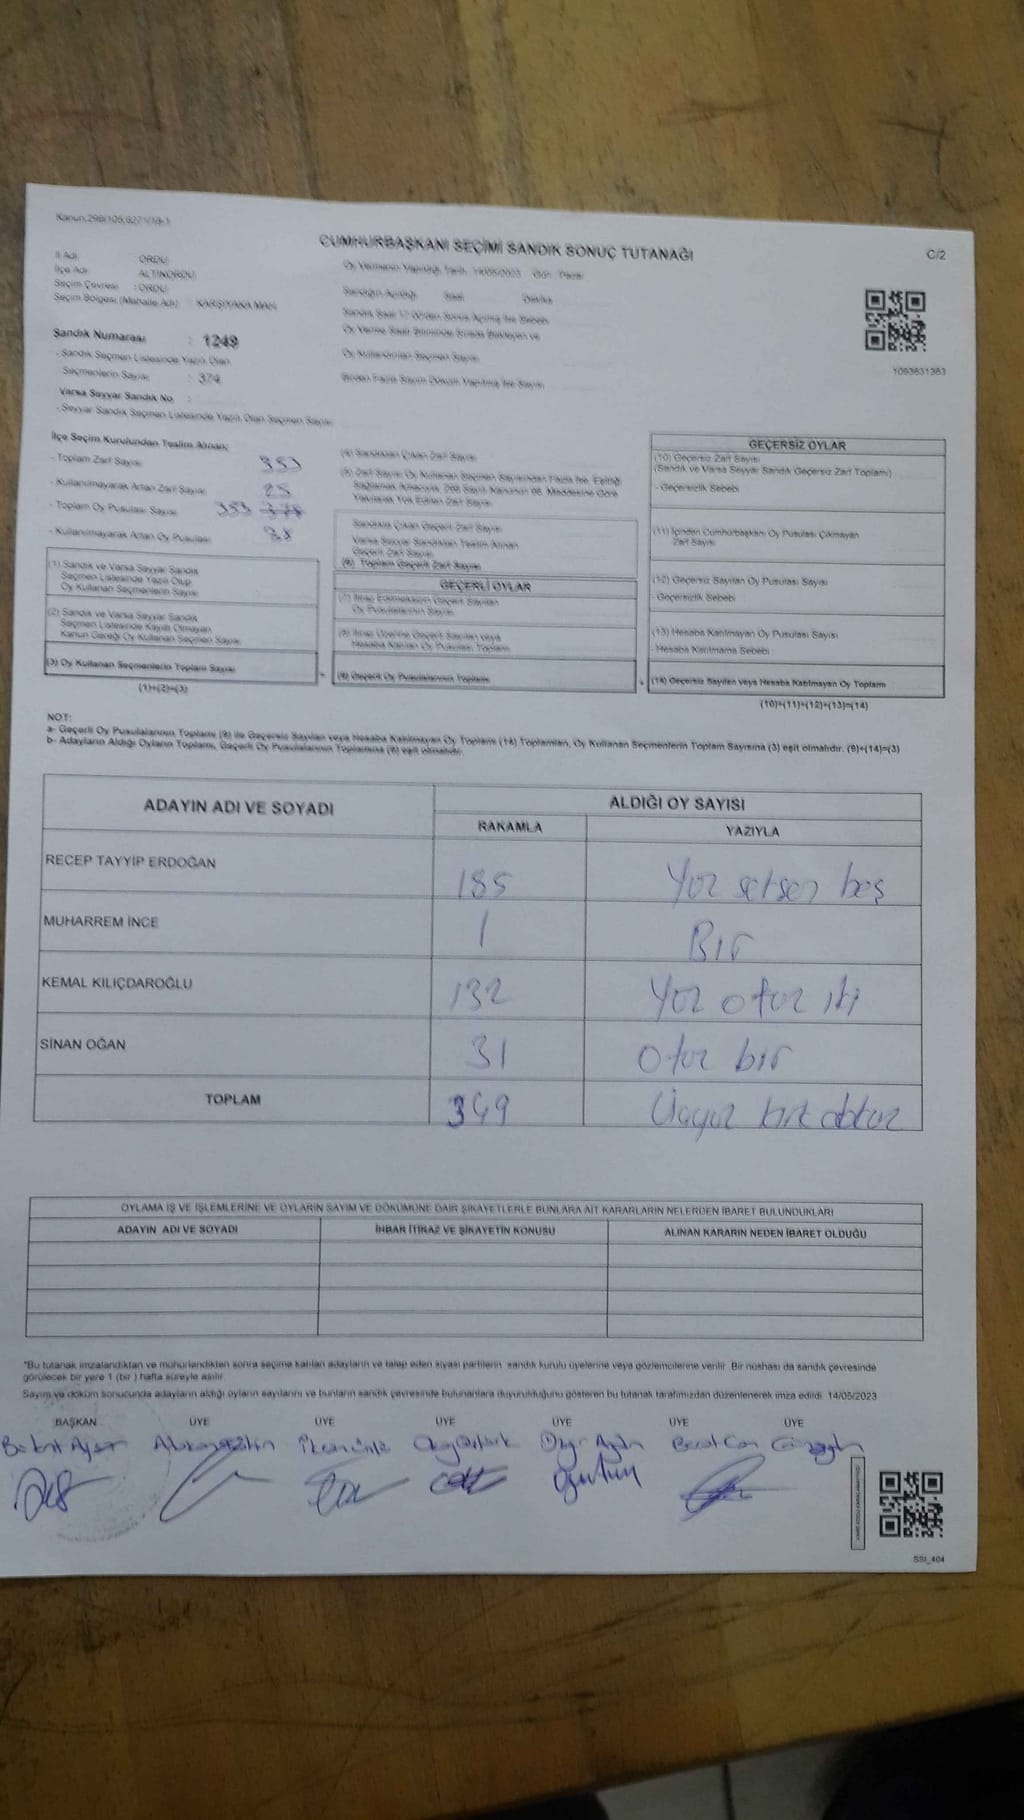 Kanun:298/105,6271/18-1
CUMHURBAŞKANI SEÇİMİ SANDIK SONUÇ TUTANAĞI
C/2
İl Adı : ORDU
İlçe Adı : ALTINORDU
Seçim Çevresi : ORDU
Seçim Bölgesi (Mahalle Adı) : KARŞIYAKA MAH.
Oy Vermenin Yapıldığı Tarih: 14/05/2023 Gün: Pazar
Sandığın Açıldığı Saat Dakika
1093831383
Sandık Numarası : 1249
- Sandık Seçmen Listesinde Yazılı Olan
Seçmenlerin Sayısı : 374
Varsa Seyyar Sandık No :
- Seyyar Sandık Seçmen Listesinde Yazılı Olan Seçmen Sayısı
Oy Kullandırılan Seçmen Sayısı
Birden Fazla Sayım Döküm Yapılmış İse Sayısı
İlçe Seçim Kurulundan Teslim Alınan;
- Toplam Zarf Sayısı 353
- Kullanılmayarak Artan Zarf Sayısı 25
- Toplam Oy Pusulası Sayısı 353 378
- Kullanılmayarak Artan Oy Pusulası
(1) Sandık ve Varsa Seyyar Sandık
Seçmen Listesinde Yazılı Olup
Oy Kullanan Seçmenlerin Sayısı
(2) Sandık ve Varsa Seyyar Sandık
Seçmen Listesinde Kayıtlı Olmayan
Kanun Gereği Oy Kullanan Seçmen Sayısı
(3) Oy Kullanan Seçmenlerin Toplam Sayısı
(1)+(2)=(3)
(4) Sandıktan Çıkan Zarf Sayısı
(5) Zarf Sayısı Oy Kullanan Seçmen Sayısından Fazla İse, Eşitliği
Sağlamak Amacıyla, 298 Sayılı Kanunun 98. Maddesine Göre
Yakılarak Yok Edilen Zarf Sayısı
Sandıkta Çıkan Geçerli Zarf Sayısı
Varsa Seyyar Sandıktan Teslim Alınan
Geçerli Zarf Sayısı
(6) Toplam Geçerli Zarf Sayısı
GEÇERLİ OYLAR
(7) İtiraz Edilmeksizin Geçerli Sayılan
Oy Pusulalarının Sayısı
(8) İtiraz Üzerine Geçerli Sayılan veya
Hesaba Katılan Oy Pusulaları Toplamı
(9) Geçerli Oy Pusulalarının Toplamı
GEÇERSİZ OYLAR
(10) Geçersiz Zarf Sayısı
(Sandık ve Varsa Seyyar Sandık Geçersiz Zarf Toplamı)
- Geçersizlik Sebebi
(11) İçinden Cumhurbaşkanı Oy Pusulası Çıkmayan
Zarf Sayısı
(12) Geçersiz Sayılan Oy Pusulası Sayısı
- Geçersizlik Sebebi
(13) Hesaba Katılmayan Oy Pusulası Sayısı
- Hesaba Katılmama Sebebi
(14) Geçersiz Sayılan veya Hesaba Katılmayan Oy Toplamı
(10)+(11)+(12)+(13)=(14)
NOT:
a- Geçerli Oy Pusulalarının Toplamı (9) ile Geçersiz Sayılan veya Hesaba Katılmayan Oy Toplamı (14) Toplamları, Oy Kullanan Seçmenlerin Toplam Sayısına (3) eşit olmalıdır. (9)+(14)=(3)
b- Adayların Aldığı Oyların Toplamı, Geçerli Oy Pusulalarının Toplamına (9) eşit olmalıdır.
ADAYIN ADI VE SOYADI ALDIĞI OY SAYISI
RAKAMLA YAZIYLA
RECEP TAYYİP ERDOĞAN 185 Yüz seksen beş
MUHARREM İNCE 1 Bir
KEMAL KILIÇDAROĞLU 132 Yüz otuz iki
SİNAN OĞAN 31 Otuz bir
TOPLAM 349
OYLAMA İŞ VE İŞLEMLERİNE VE OYLARIN SAYIM VE DÖKÜMÜNE DAİR ŞİKAYETLERLE BUNLARA AİT KARARLARIN NELERDEN İBARET BULUNDUKLARI
ADAYIN ADI VE SOYADI İHBAR İTİRAZ VE ŞİKAYETİN KONUSU ALINAN KARARIN NEDEN İBARET OLDUĞU
*Bu tutanak imzalandıktan ve mühürlendikten sonra seçime katılan adayların ve talep eden siyasi partilerin sandık kurulu üyelerine veya gözlemcilerine verilir. Bir nüshası da sandık çevresinde
görülecek bir yere 1 (bir) hafta süreyle asılır.
Sayım ve döküm sonucunda adayların aldığı oyların sayılarını ve bunların sandık çevresinde bulunanlara duyurulduğunu gösteren bu tutanak tarafımızdan düzenlenerek imza edildi. 14/05/2023
BAŞKAN ÜYE ÜYE ÜYE ÜYE ÜYE ÜYE
SSI_404